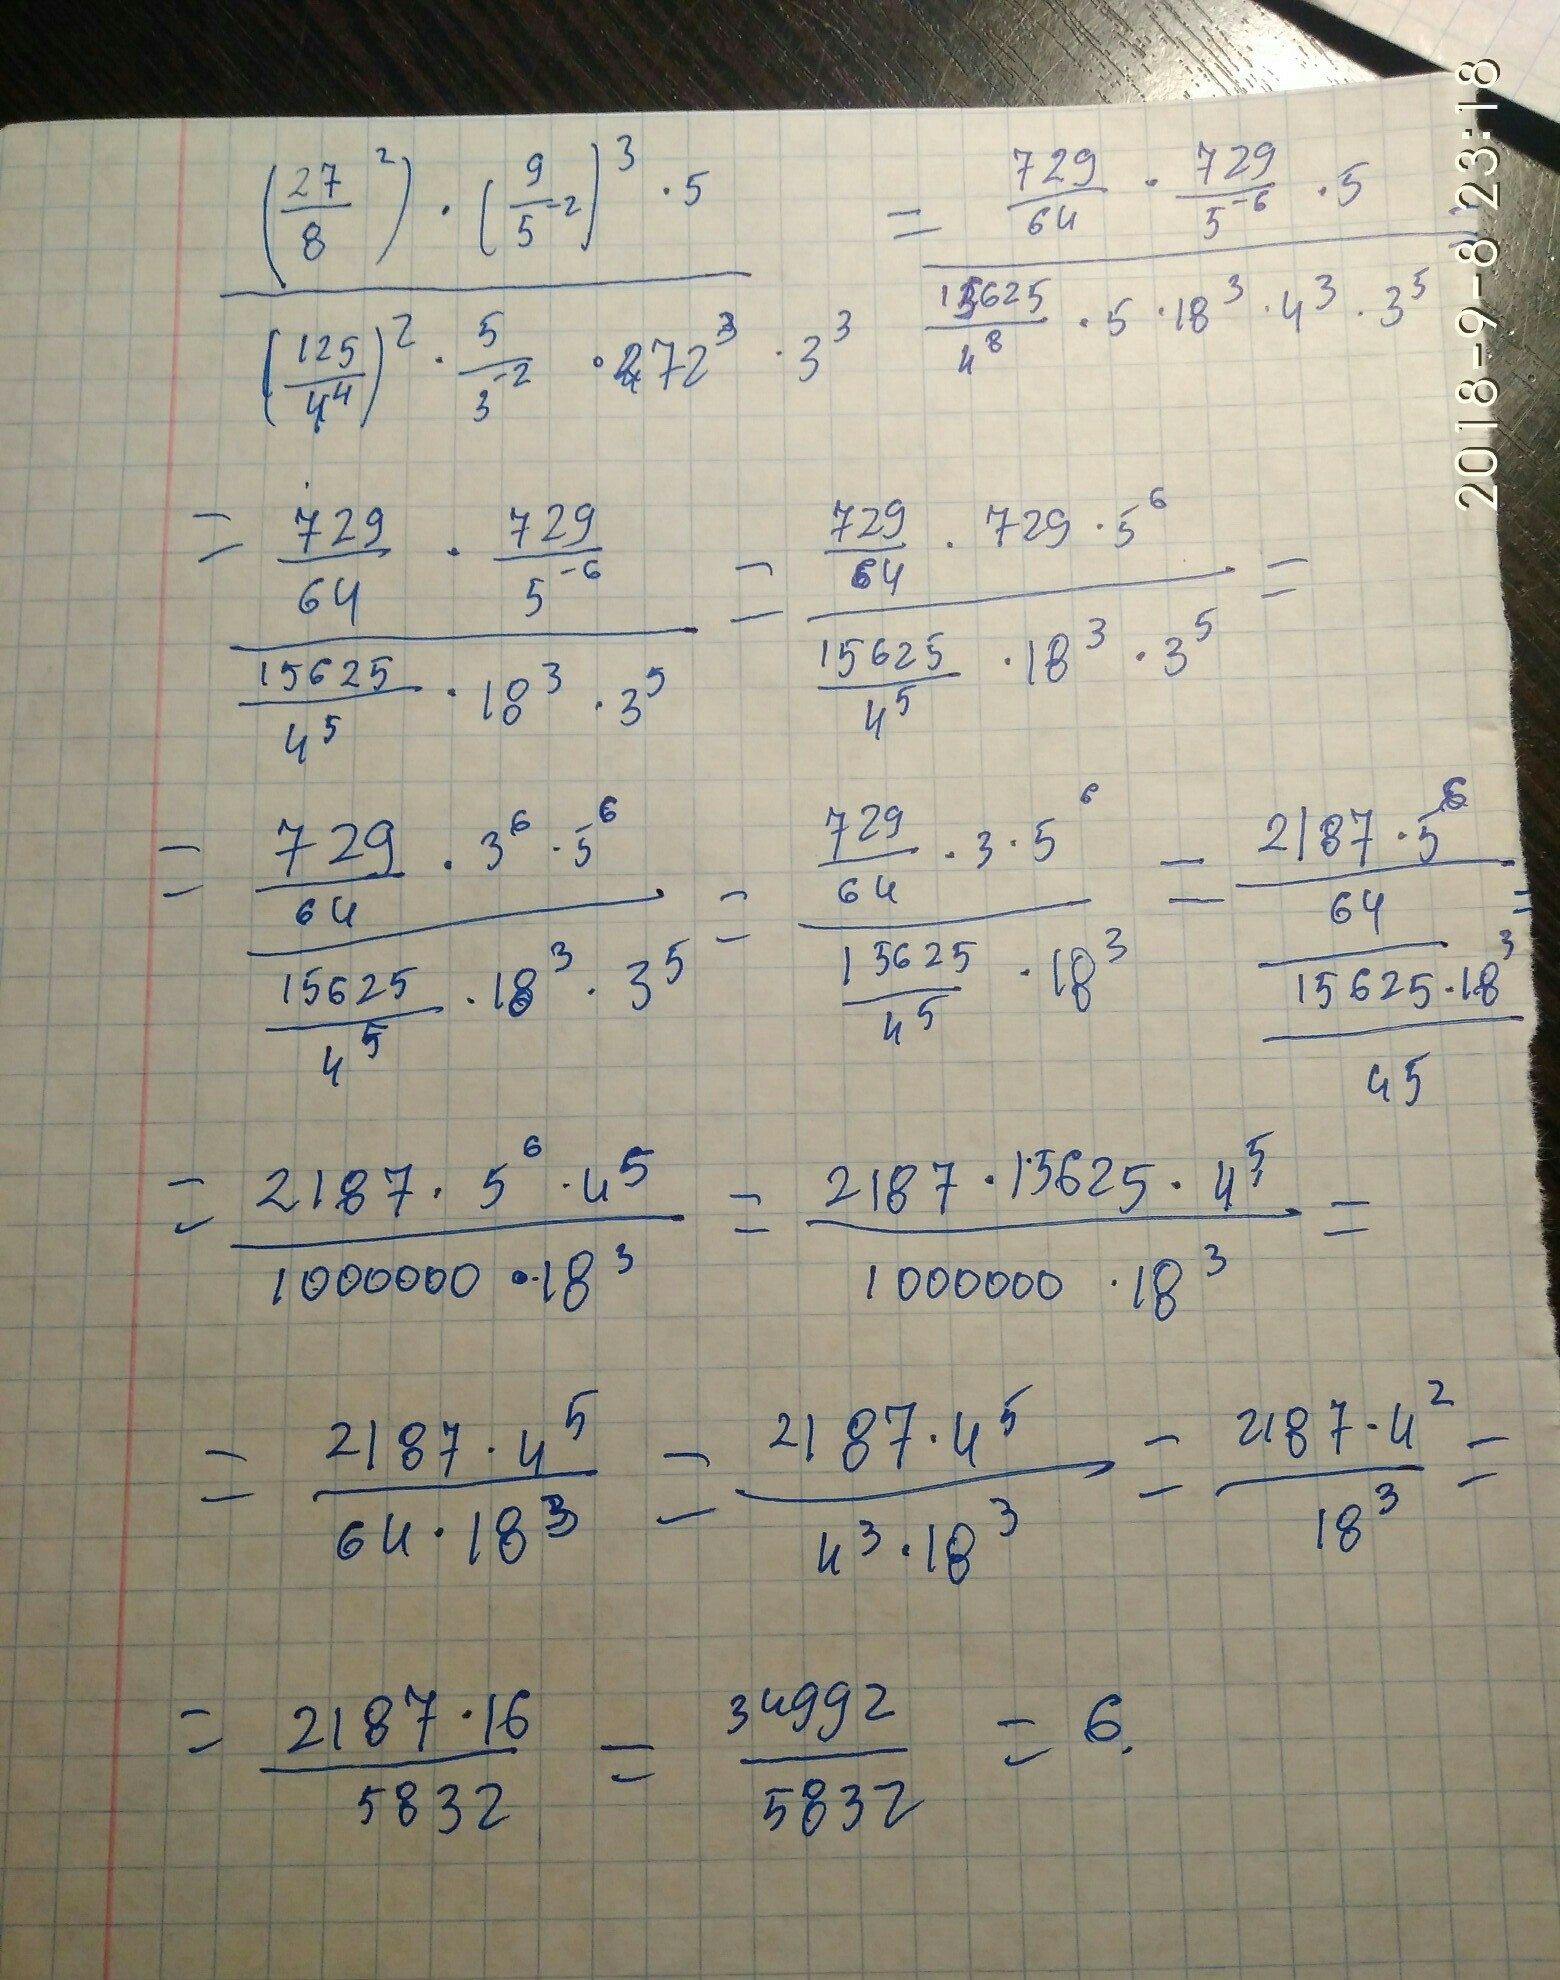 (27/8 ²) · (9/5⁻²)³ · 5 / (125/4⁴)² · 5/3⁻² · 72³ · 3³ = 729/64 · 729/5⁻⁶ · 5 / 15625/4⁸ · 5 · 18³ · 4³ · 3⁵
= 729/64 · 729/5⁻⁶ / 15625/4⁵ · 18³ · 3⁵ = 729/64 · 729 · 5⁶ / 15625/4⁵ · 18³ · 3⁵ =
= 729/64 · 3⁶ · 5⁶ / 15625/4⁵ · 18³ · 3⁵ = 729/64 · 3 · 5⁶ / 15625/4⁵ · 18³ = 2187 · 5⁶ / 64 / 15625 · 18³ / 45 =
= 2187 · 5⁶ · 4⁵ / 1000000 · 18³ = 2187 · 15625 · 4⁵ / 1000000 · 18³ =
= 2187 · 4⁵ / 64 · 18³ = 2187 · 4⁵ / 4³ · 18³ = 2187 · 4² / 18³ =
= 2187 · 16 / 5832 = 34992 / 5832 = 6.
2018-9-8 23:18